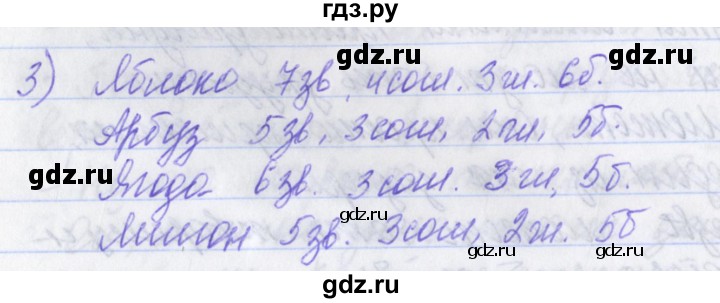 гдз.ру
gdz.ru gdz.ru
3) Яблоко 7зв, 4согл. 3гл. 6б.
Арбуз 5зв, 3согл, 2гл, 5б.
gdz.ru
Ягода 6зв. 3согл. 3гл, 5б.
gdz.ru gdz.ru
Лимон 5зв. 3согл, 2гл. 5б
gdz.ru gdz.ru
gdz.ru